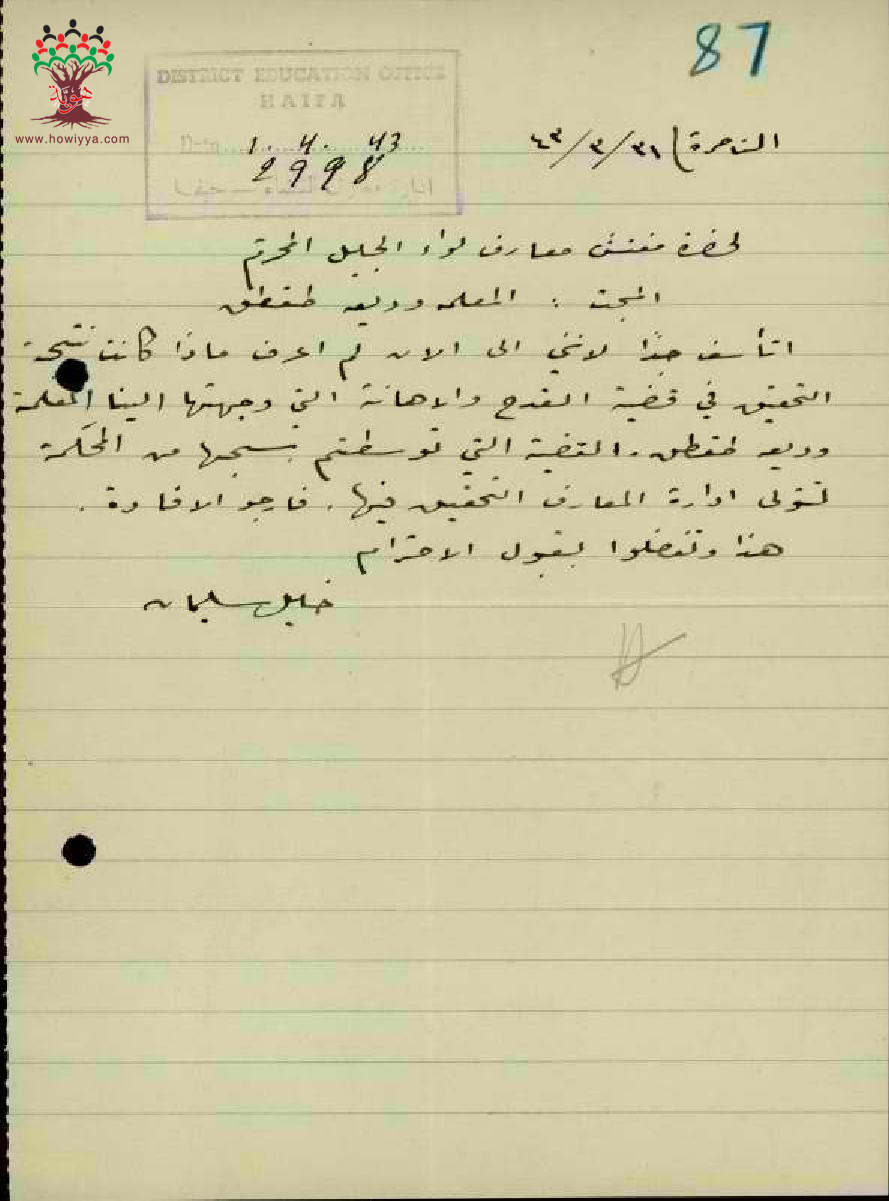 87
هوية
www.howiyya.com
DISTRICT EDUCATION OFFICE
HAIFA
Date 1. 4. 43
2998
الناصرة ٣١/٣/٤٣
لحضرة مفتش معارف لواء الجليل المحترم
المبحث : المعلمه وديعه طقطق
اتأسف جدًا لانني الى الان لم اعرف ماذا كانت نتيجة
التحقيق في قضية القدح والاهانة التي وجهتها الينا المعلمة
وديعه طقطق. القضية التي توسطتم بسحبها من المحكمة
لتتولى ادارة المعارف التحقيق فيها. فارجو الافادة.
هذا وتفضلوا بقبول الاحترام
خليل سليمان